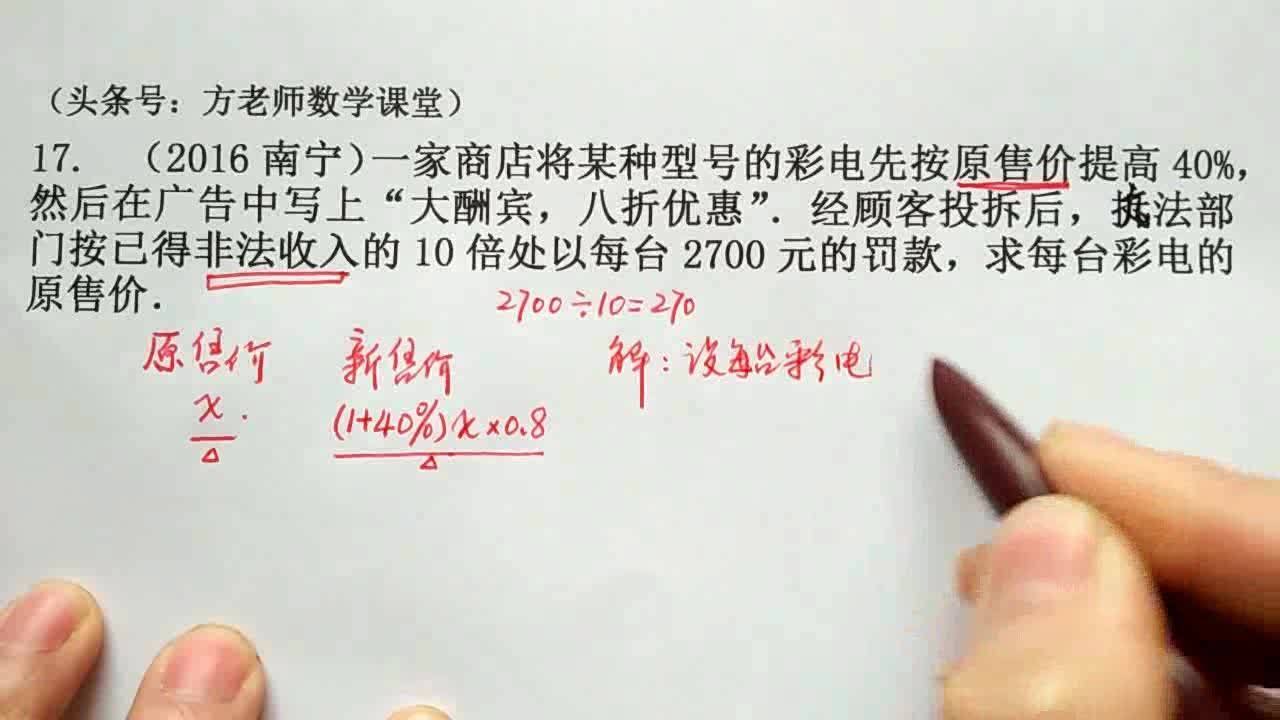 （头条号：方老师数学课堂）
17. （2016 南宁）一家商店将某种型号的彩电先按原售价提高 40%，
然后在广告中写上“大酬宾，八折优惠”．经顾客投拆后，执法部
门按已得非法收入的 10 倍处以每台 2700 元的罚款，求每台彩电的
原售价．
2700÷10=270
原售价 新售价 解：设每台彩电
x. (1+40%)x×0.8